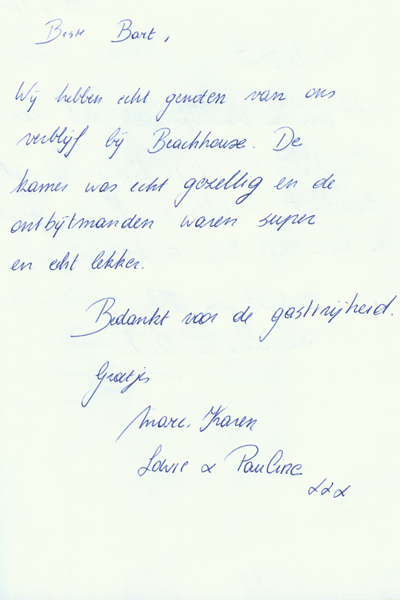 Beste Bart,
Wij hebben echt genoten van ons
verblijf bij Beachhouse. De
kamer was echt gezellig en de
ontbijtmanden waren super
en echt lekker.
Bedankt voor de gastvrijheid.
Groetjes
Marc, Karen
Lowie & Pauline
xxx